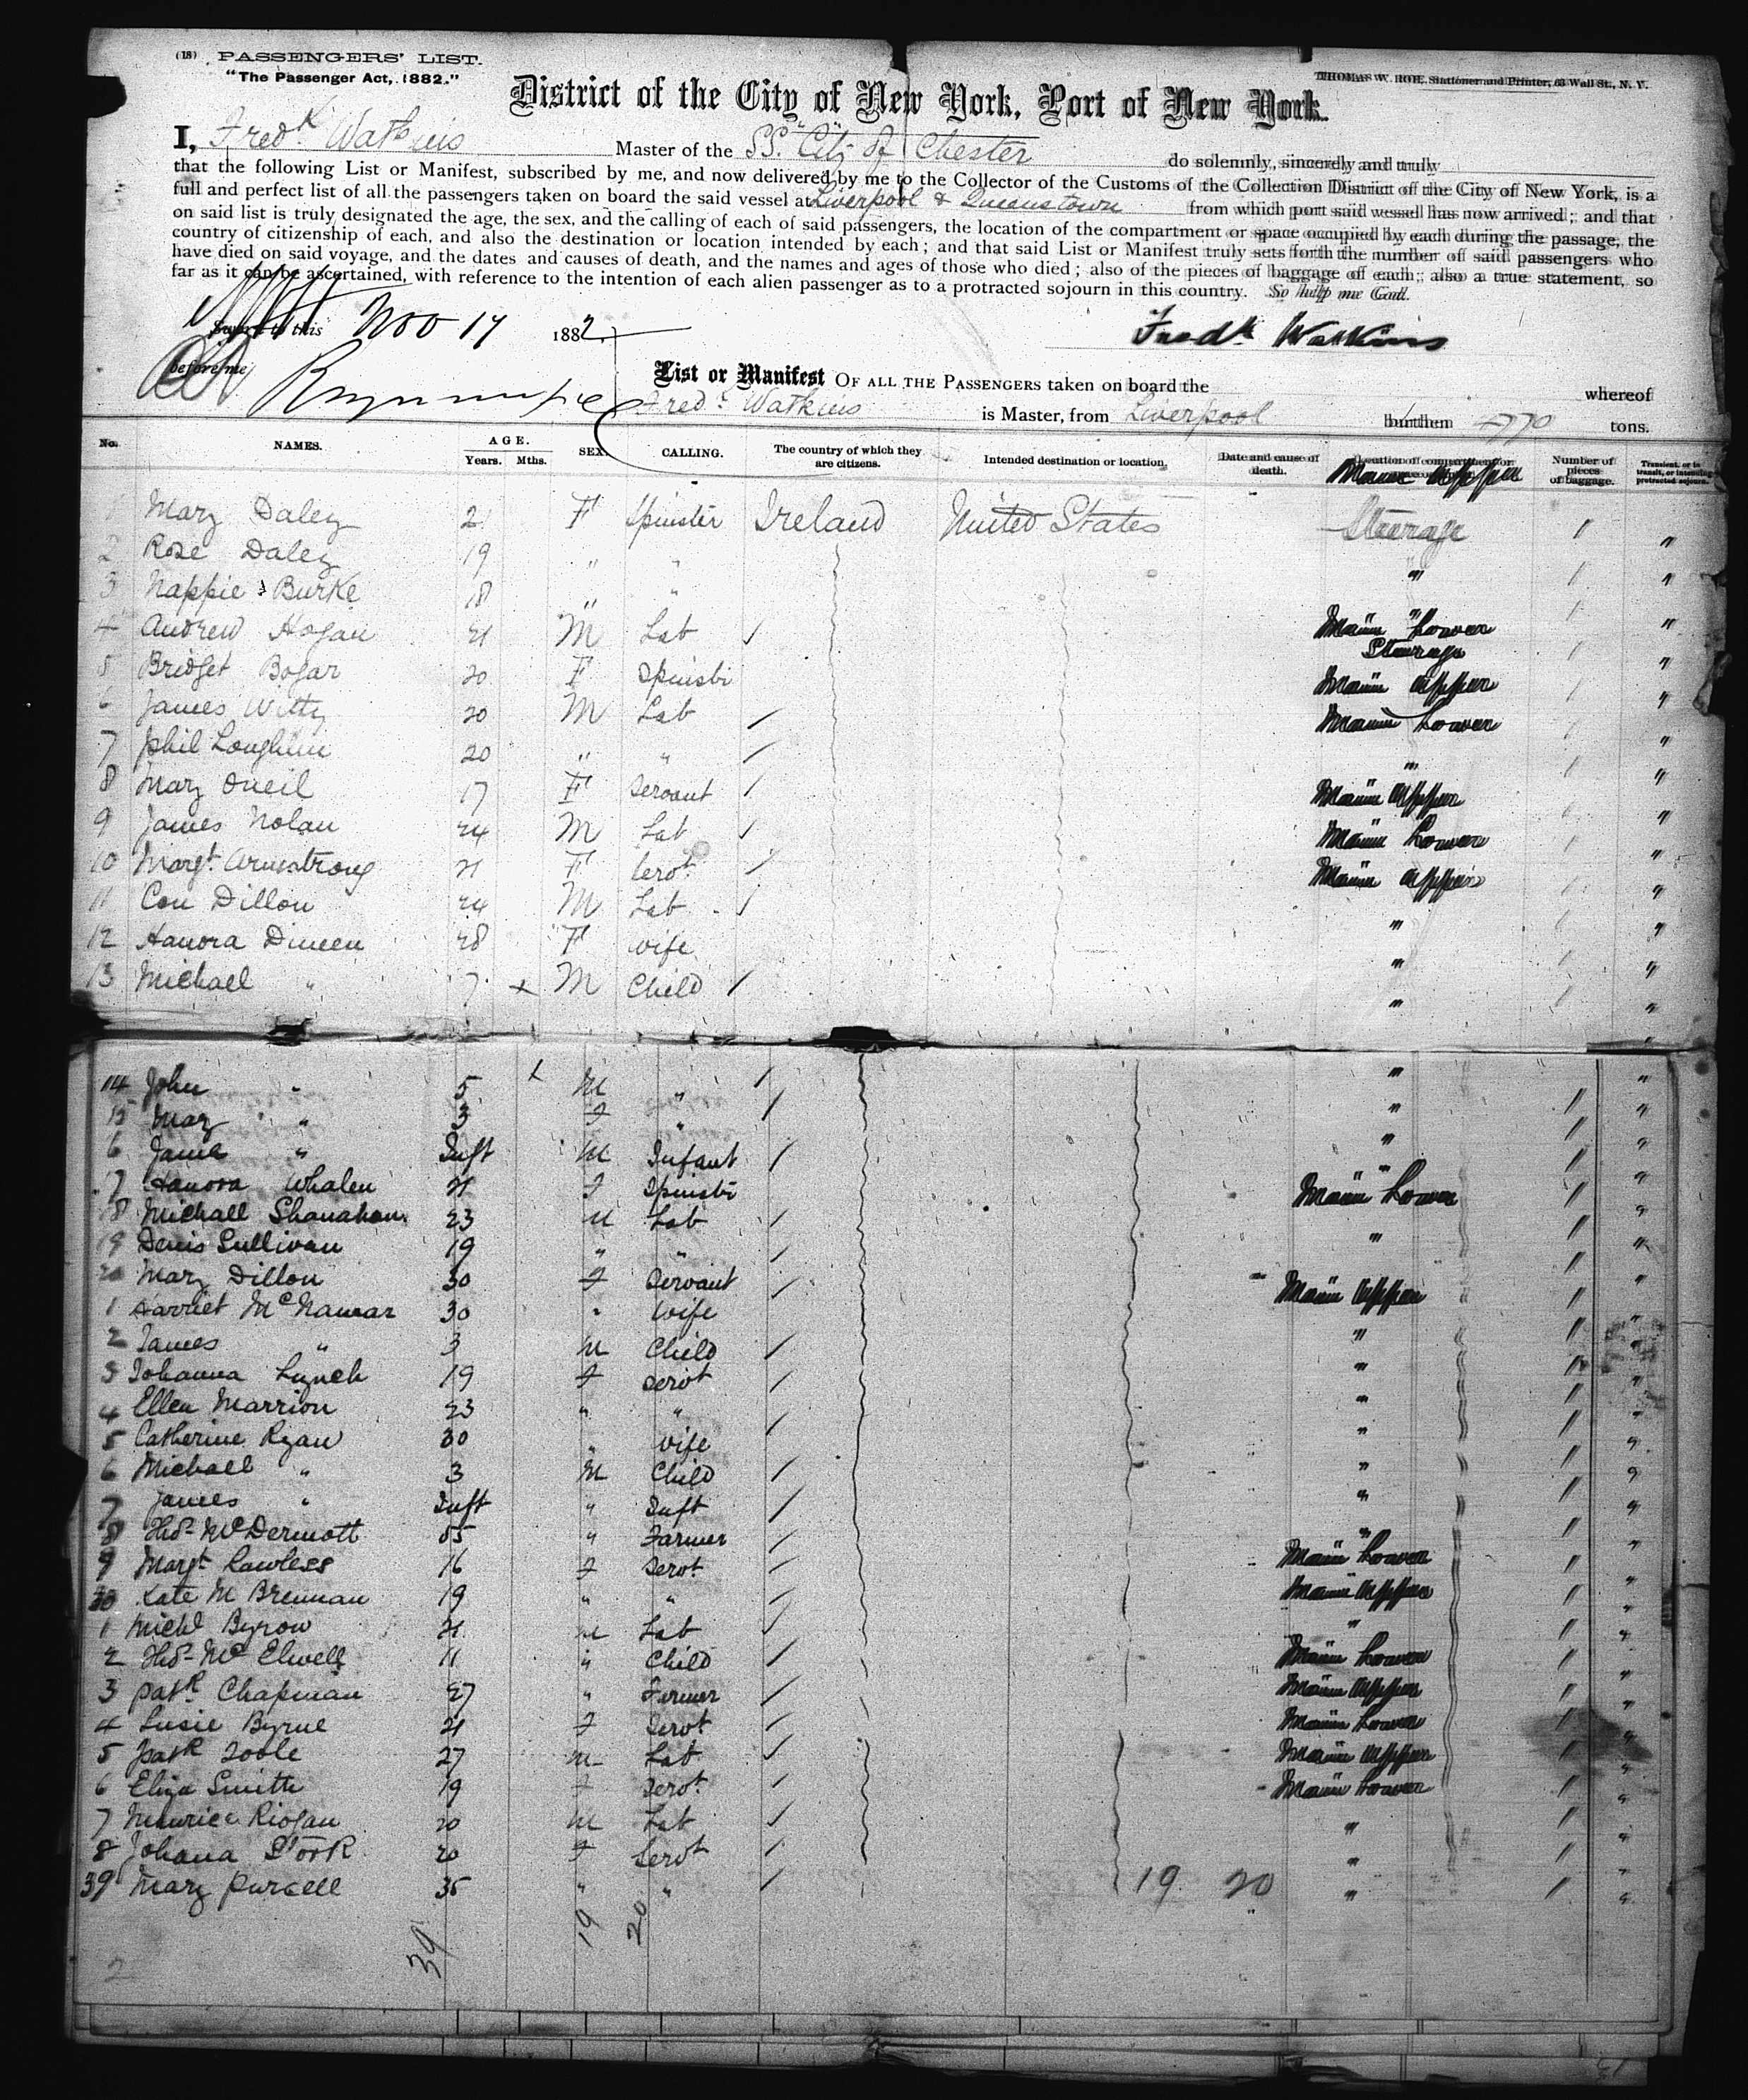 (18) PASSENGERS' LIST.
"The Passenger Act, 1882."
THOMAS W. ROE, Stationer and Printer, 63 Wall St., N. Y.
District of the City of New York, Port of New York.
I, Fredk Watkins Master of the SS. "City of Chester do solemnly, sincerely and truly
that the following List or Manifest, subscribed by me, and now delivered by me to the Collector of the Customs of the Collection District of the City of New York, is a
full and perfect list of all the passengers taken on board the said vessel at Liverpool & Queenstown from which port said vessel has now arrived; and that
on said list is truly designated the age, the sex, and the calling of each of said passengers, the location of the compartment or space occupied by each during the passage, the
country of citizenship of each, and also the destination or location intended by each; and that said List or Manifest truly sets forth the number of said passengers who
have died on said voyage, and the dates and causes of death, and the names and ages of those who died; also of the pieces of baggage of each; also a true statement, so
far as it can be ascertained, with reference to the intention of each alien passenger as to a protracted sojourn in this country. So help me God.
Sworn to this Nov 17 1882. Fredk Watkins
before me
List or Manifest OF ALL THE PASSENGERS taken on board the whereof
Fredk Watkins is Master, from Liverpool burthen 4770 tons.
No. NAMES. AGE. Years. Mths. SEX. CALLING. The country of which they are citizens. Intended destination or location, Date and cause of death. Location of compartment or Number of pieces of baggage. Transient, or in transit, or intending protracted sojourn.
1 Mary Daley 21 F Spinster Ireland United States Steerage
2 Rose Daley 19 " "
3 Nappie Burke 18 " "
4 Andrew Hogan 21 M Lab
5 Bridget Bogar 20 F Spinstr Steerage
6 James Witty 20 M Lab
7 Phil Loughlin 20 " "
8 Mary Oneil 17 F Servant
9 James Nolan 24 M Lab
10 Margt. Armstrong 21 F Servt.
11 Con Dillon 24 M Lab
12 Hanora Dineen 28 F wife
13 Michael " 7 M Child
14 John " 5 M "
15 Mary " 3 F "
6 Jame " Inft M Infant
17 Hanora Whalen 21 F Spinstr
18 Michael Shanahan 23 M Lab
19 Denis Sullivan 19 " "
20 Mary Dillon 30 F Servant
1 Harriet McNamar 30 " Wife
2 James " 3 M Child
3 Johanna Lynch 19 F Servt
4 Ellen Marrion 23 " "
5 Catherine Ryan 30 " wife
6 Michael " 3 M Child
7 James " Inft " Inft
8 Thos McDermott 55 " Farmer
9 Margt Lawless 16 F Servt.
30 Kate M Brennan 19 " "
1 Michl Byrow 21 M Lab
2 Thos McElwell 11 " Child
3 Patk. Chapman 27 " Farmer
4 Susie Byrne 21 F Servt
5 Patk Toole 27 M Lab
6 Eliza Smith 19 F Servt.
7 Maurice Riogan 20 M Lab
8 Johana Stork 20 F Servt
39 Mary Purcell 35 " " 19 20
39 19 20
2